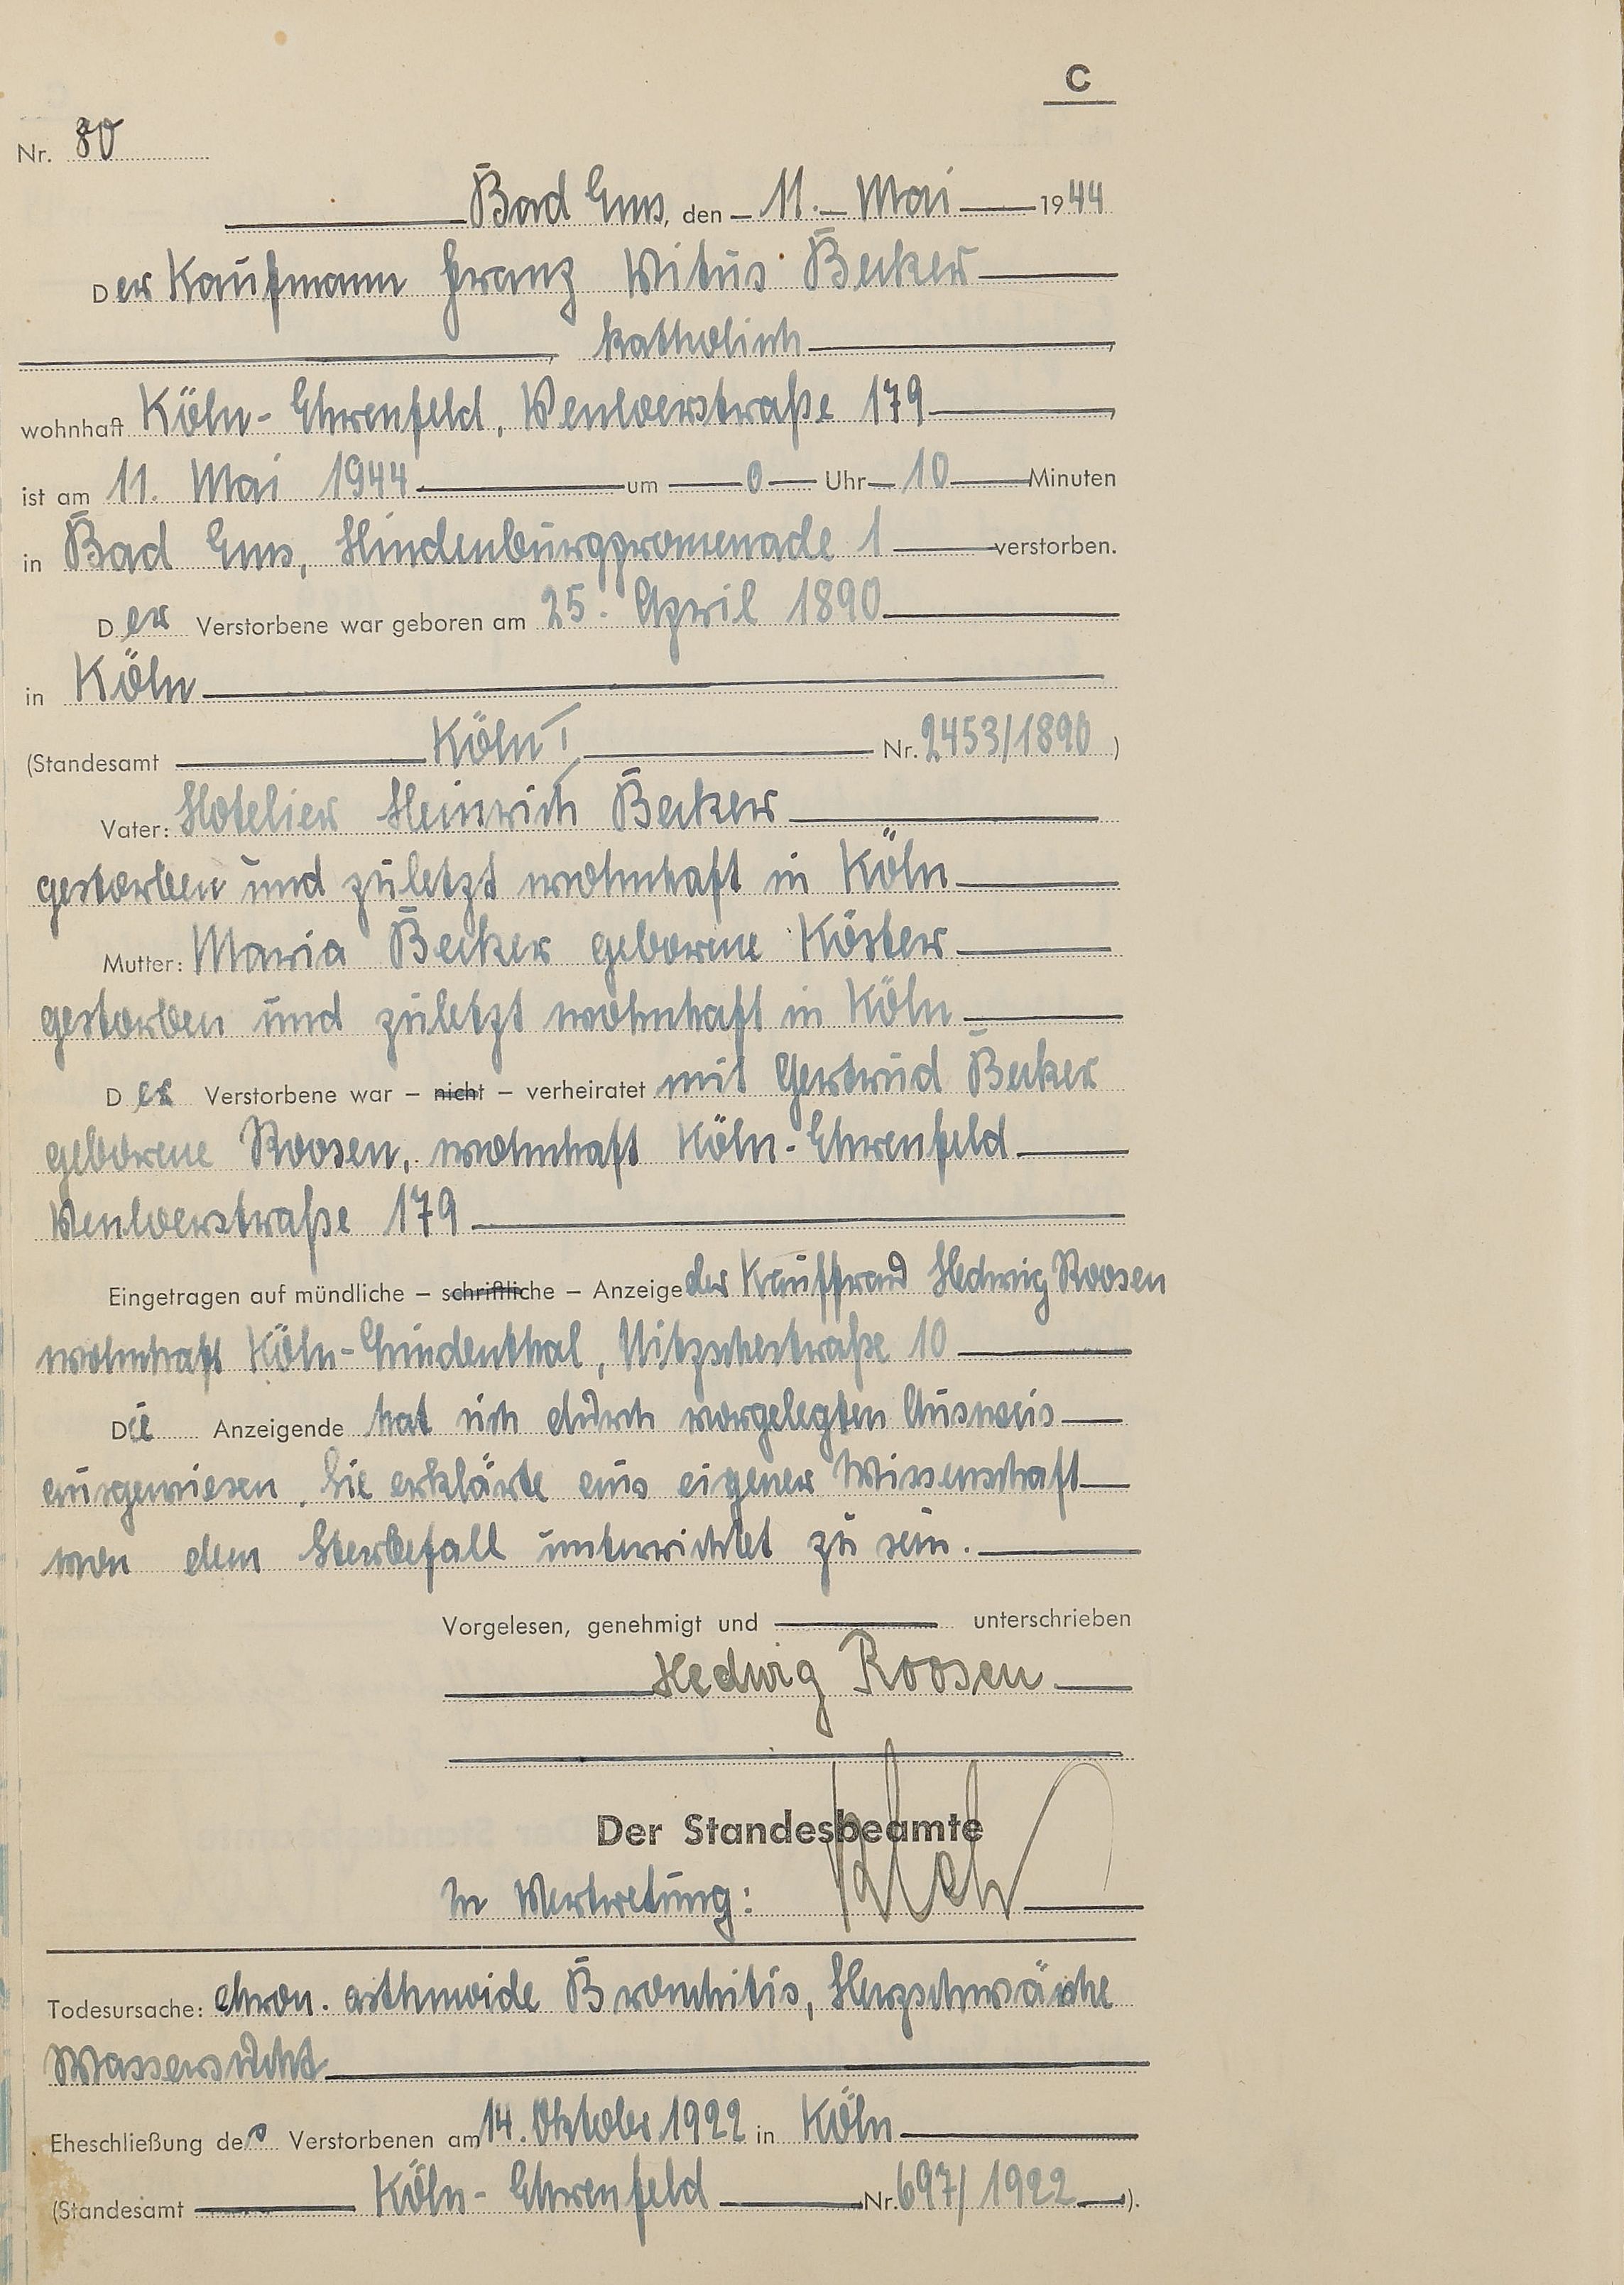 C
Nr. 80
Bad Ems, den 11. Mai 1944
Der Kaufmann Franz Vitus Becker
, katholisch
wohnhaft Köln-Ehrenfeld, Venloerstraße 179
ist am 11. Mai 1944 um 0 Uhr 10 Minuten
in Bad Ems, Hindenburgpromenade 1 verstorben.
Der Verstorbene war geboren am 25. April 1890
in Köln
(Standesamt Köln I Nr. 2453/1890)
Vater: Hotelier Heinrich Becker
gestorben und zuletzt wohnhaft in Köln
Mutter: Maria Becker geborene Köster
gestorben und zuletzt wohnhaft in Köln
Der Verstorbene war – nicht – verheiratet mit Gertrud Becker
geborene Roosen, wohnhaft Köln-Ehrenfeld
Venloerstraße 179
Eingetragen auf mündliche – schriftliche – Anzeige der Kauffrau Hedwig Roosen
wohnhaft Köln-Lindenthal, Nitzschestraße 10
Die Anzeigende hat sich durch vorgelegten Ausweis
ausgewiesen. Sie erklärte aus eigener Wissenschaft
von dem Sterbefall unterrichtet zu sein.
Vorgelesen, genehmigt und unterschrieben
Hedwig Roosen
Der Standesbeamte
In Vertretung:
Todesursache: chron. asthmoide Bronchitis, Herzschwäche
Wassersucht
Eheschließung des Verstorbenen am 14. Oktober 1922 in Köln
(Standesamt Köln-Ehrenfeld Nr. 697/1922).